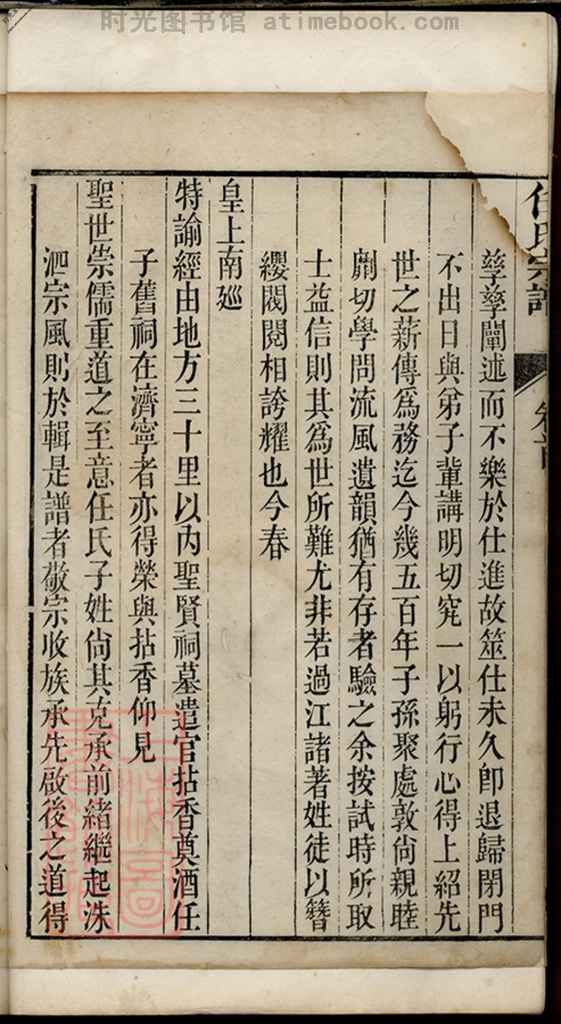 时光图书馆 atimebook.com
任氏宗譜
卷首
孳孳闡述而不樂於仕進故筮仕未久卽退歸閉門
不出日與弟子輩講明切究一以躬行心得上紹先
世之薪傳爲務迄今幾五百年子孫聚處敦尙親睦
劘切學問流風遺韻猶有存者驗之余按試時所取
士益信則其爲世所難尤非若過江諸著姓徒以簪
纓閥閱相誇耀也今春
皇上南廵
特諭經由地方三十里以內聖賢祠墓遣官拈香奠酒任
子舊祠在濟寧者亦得榮與拈香仰見
聖世崇儒重道之至意任氏子姓尙其克承前緒繼起洙
泗宗風則於輯是譜者敬宗收族承先啟後之道得